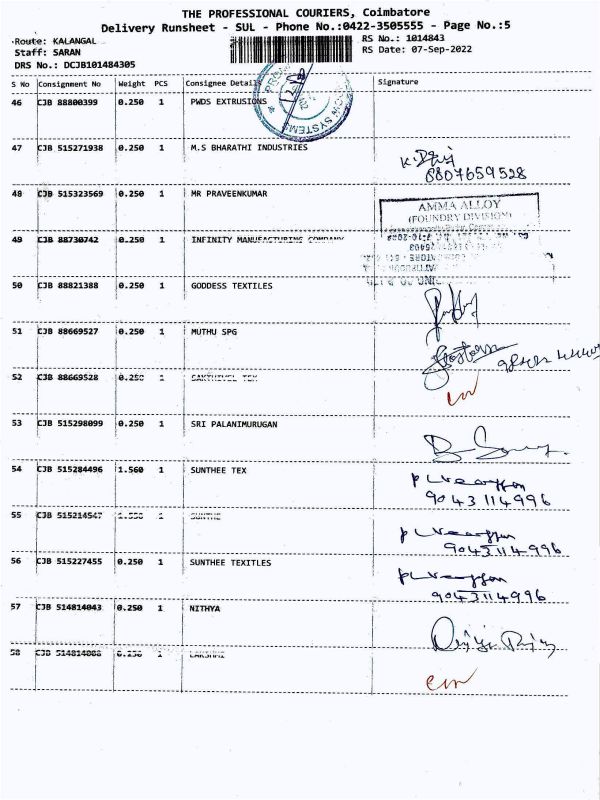 THE PROFESSIONAL COURIERS, Coimbatore
Delivery Runsheet - SUL - Phone No.:0422-3505555 - Page No.:5
Route: KALANGAL RS No.: 1014843
Staff: SARAN RS Date: 07-Sep-2022
DRS No.: DCJB101484305
S No Consignment No Weight PCS Consignee Details Signature
46 CJB 88800399 0.250 1 PWDS EXTRUSIONS
47 CJB 515271938 0.250 1 M.S BHARATHI INDUSTRIES
8807659528
48 CJB 515323569 0.250 1 MR PRAVEENKUMAR
AMMA ALLOY
(FOUNDRY DIVISION)
49 CJB 88730742 0.250 1 INFINITY MANUFACTURING COMPANY
50 CJB 88821388 0.250 1 GODDESS TEXTILES
51 CJB 88669527 0.250 1 MUTHU SPG
52 CJB 88669528 0.250 1 SAKTHIVEL TEX
53 CJB 515298099 0.250 1 SRI PALANIMURUGAN
54 CJB 515284496 1.560 1 SUNTHEE TEX
9043114996
55 CJB 515214547 1 SUNTHE
9043114996
56 CJB 515227455 0.250 1 SUNTHEE TEXITLES
9043114996
57 CJB 514814043 0.250 1 NITHYA
58 CJB 514814088 1 LAKSHMI